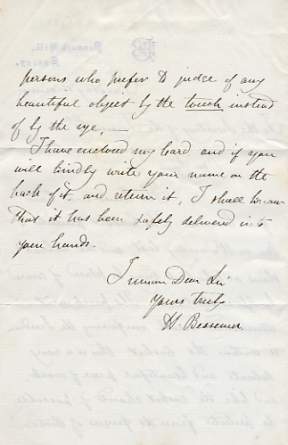 persons who prefer to judge of any
beautiful object by the touch instead
of by the eye, —
I have enclosed my card and if you
will kindly write your name on the
back of it and return it, I shall know
that it has been safely delivered into
your hands.
I remain Dear Sir
Yours truly
H. Bessemer